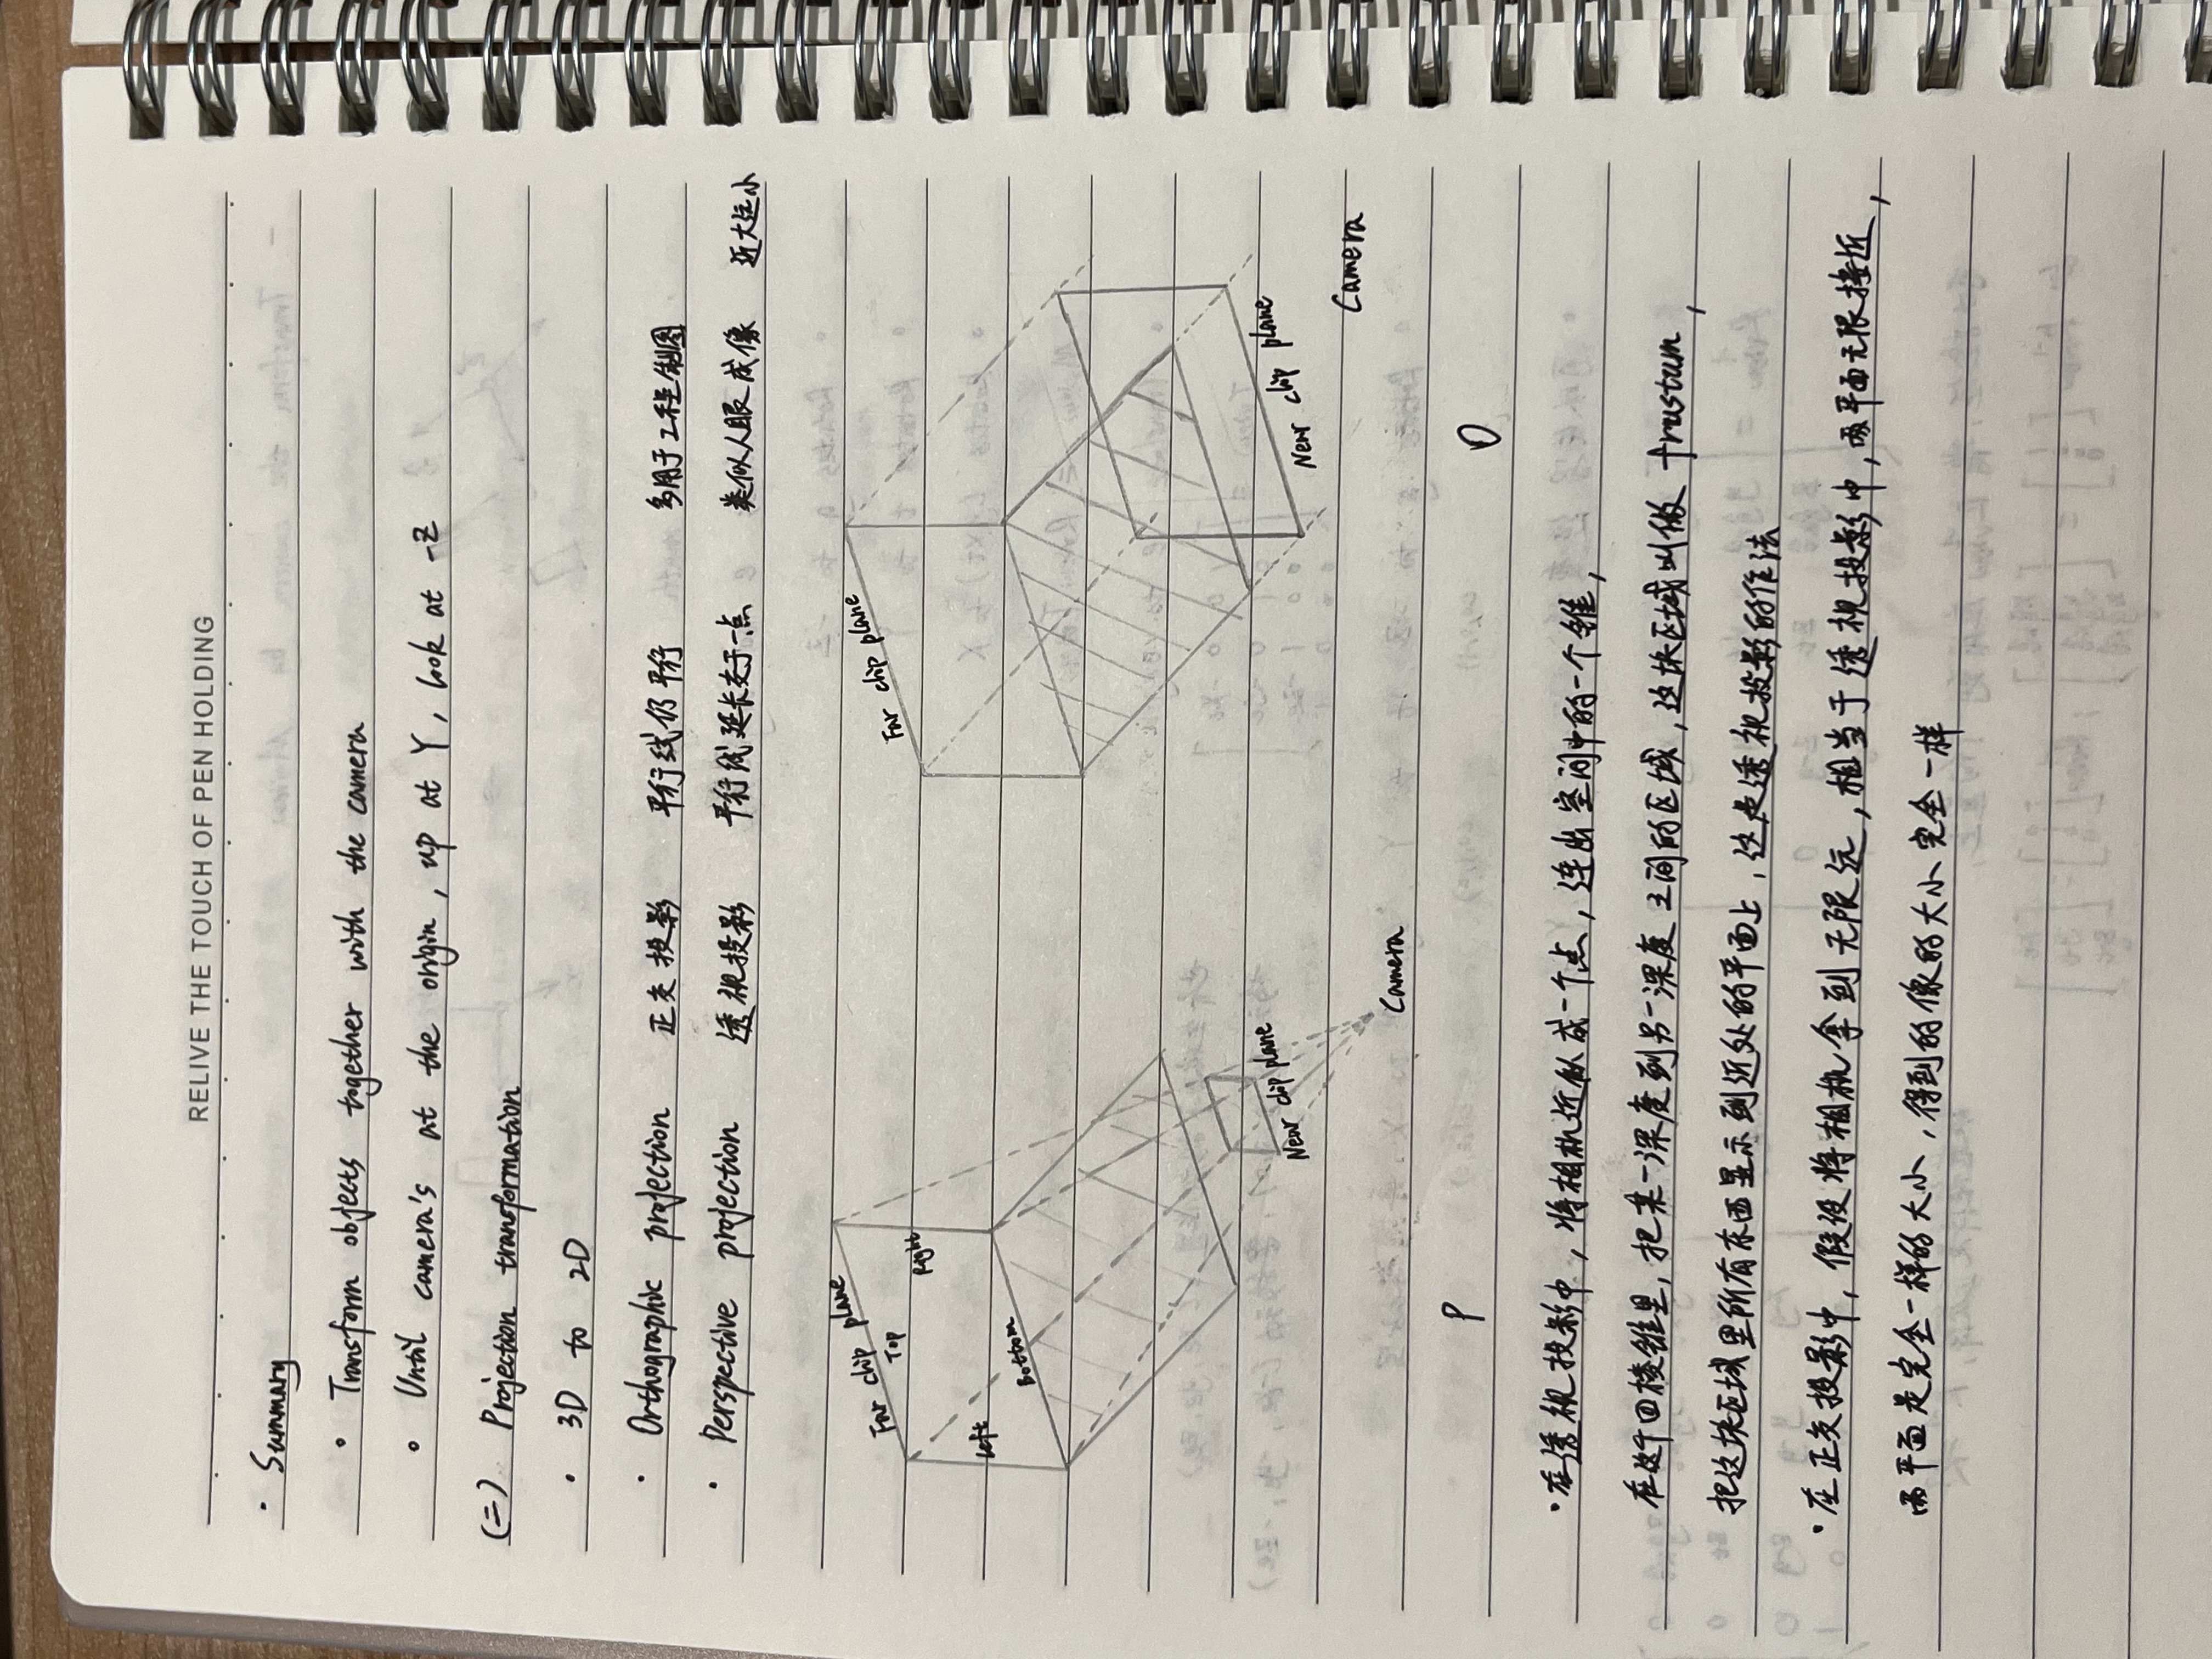 RELIVE THE TOUCH OF PEN HOLDING
· Summary
· Transform objects together with the camera
· Until camera's at the origin, up at Y, look at -Z
(二) Projection transformation
· 3D to 2D
· Orthographic projection 正交投影 平行线仍平行 多用于工程制图
· Perspective projection 透视投影 平行线延长交于一点 类似人眼成像 近大远小
Far clip plane
Top
Right
Left
Bottom
Near clip plane
Camera
P
Far clip plane
Near clip plane
Camera
O
· 在透视投影中，将相机近似成一个点，连出空间中的一个锥，
在这个四棱锥里，把某一深度到另一深度之间的区域，这块区域叫做 frustum，
把这块区域里所有东西显示到近处的平面上，这是透视投影的作法
· 在正交投影中，假设将相机拿到无限远，相当于透视投影中，两平面无限接近，
两平面是完全一样的大小，得到的像的大小完全一样